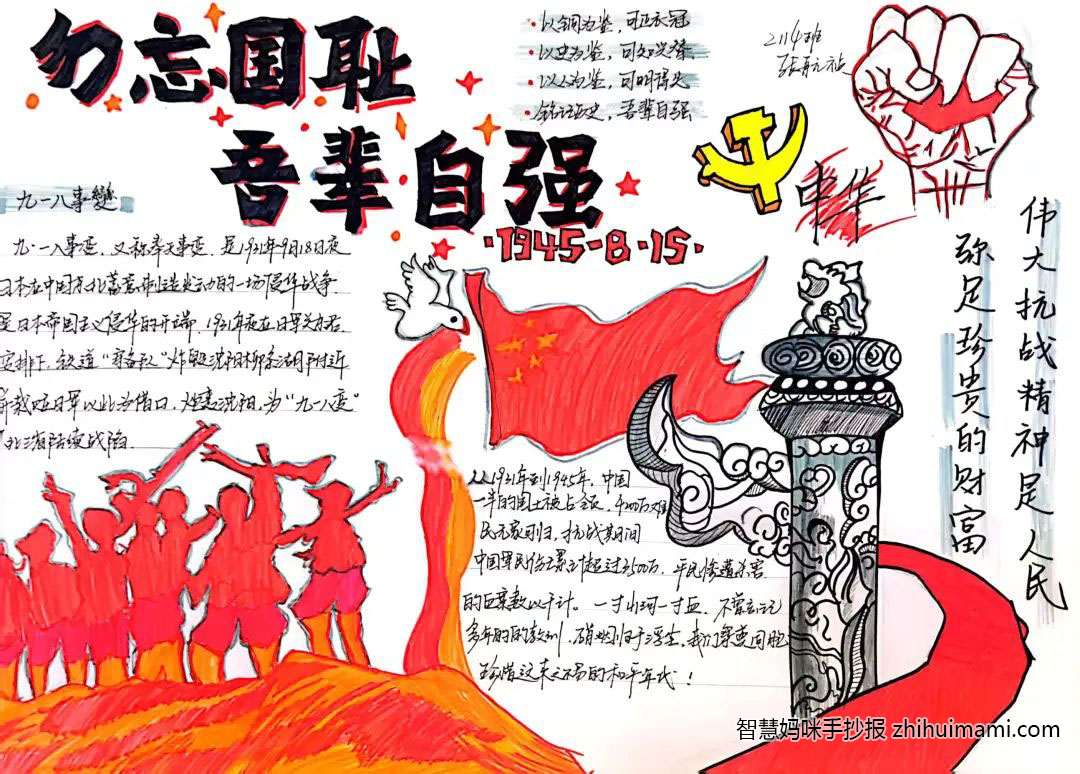 勿忘国耻
吾辈自强
·1945-8-15·
·以铜为鉴，可正衣冠
·以史为鉴，可知兴替
·以人为鉴，可明得失
·铭记历史，吾辈自强
2114班
中华
九一八事變
九·一八事变，又称奉天事变，是1931年9月18日夜
日本在中国东北蓄意制造发动的一场侵华战争，
是日本帝国主义侵华的开端，1931年夜在日军关东军
安排下，铁道“守备队”炸毁沈阳柳条湖附近
并栽赃 日军以此为借口，炮轰沈阳，为“九一八变”
东北三省陆续战陷．
从1931年到1945年，中国
一半的国土被占领，4200万难
民无家可归，抗战期间
中国军民伤亡累计超过3500万，平民惨遭杀害
的 以千计。一寸山河一寸血，不忘
多年的的教训，硝烟归于浮尘，我们
珍惜这来之不易的和平年代！
伟大抗战精神是人民
弥足珍贵的财富
智慧妈咪手抄报 zhihuimami.com